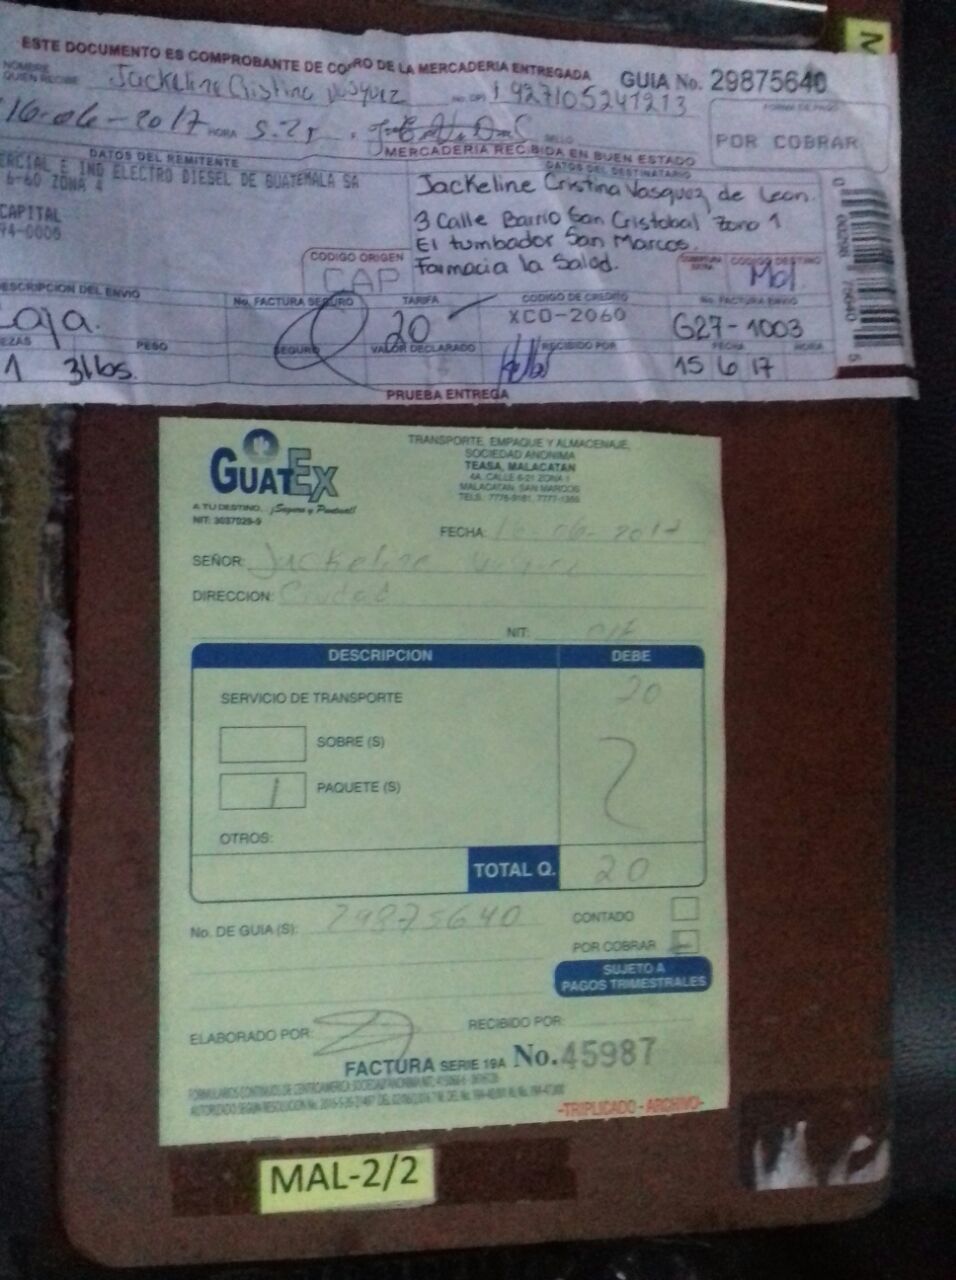 ESTE DOCUMENTO ES COMPROBANTE DE COBRO DE LA MERCADERIA ENTREGADA
GUIA No. 29875640
NOMBRE QUIEN RECIBE Jackeline Cristina Vasquez
16-06-2017 HORA
FORMA DE PAGO
POR COBRAR
MERCADERIA RECIBIDA EN BUEN ESTADO
DATOS DEL REMITENTE
DATOS DEL DESTINATARIO
ERCIAL E IND ELECTRO DIESEL DE GUATEMALA SA
6-60 ZONA 4
CAPITAL
94-0000
Jackeline Cristina Vasquez de Leon.
3 Calle Barrio San Cristobal Zona 1
El tumbador San Marcos.
Farmacia la Salud.
CODIGO ORIGEN
CAP
CODIGO DESTINO
Mal
DESCRIPCION DEL ENVIO
No. FACTURA SEGURO
TARIFA
CODIGO DE CREDITO
No. FACTURA ENVIO
Caja.
20
XCO-2060
G27-1003
PIEZAS
PESO
SEGURO
VALOR DECLARADO
RECIBIDO POR
FECHA
HORA
1
3 lbs.
15 6 17
PRUEBA ENTREGA
GUATEX
A TU DESTINO, ¡Seguro y Puntual!
NIT: 3037029-9
TRANSPORTE, EMPAQUE Y ALMACENAJE,
SOCIEDAD ANONIMA
TEASA, MALACATAN
4A. CALLE 6-21 ZONA 1
MALACATAN, SAN MARCOS
FECHA: 16-06-2017
SEÑOR: Jackeline
DIRECCION: Ciudad
NIT:
DESCRIPCION
DEBE
SERVICIO DE TRANSPORTE
20
SOBRE (S)
1 PAQUETE (S)
OTROS:
TOTAL Q. 20
No. DE GUIA (S): 29875640
CONTADO
POR COBRAR
SUJETO A
PAGOS TRIMESTRALES
ELABORADO POR:
RECIBIDO POR:
FACTURA SERIE 19A No. 45987
-TRIPLICADO - ARCHIVO-
MAL-2/2